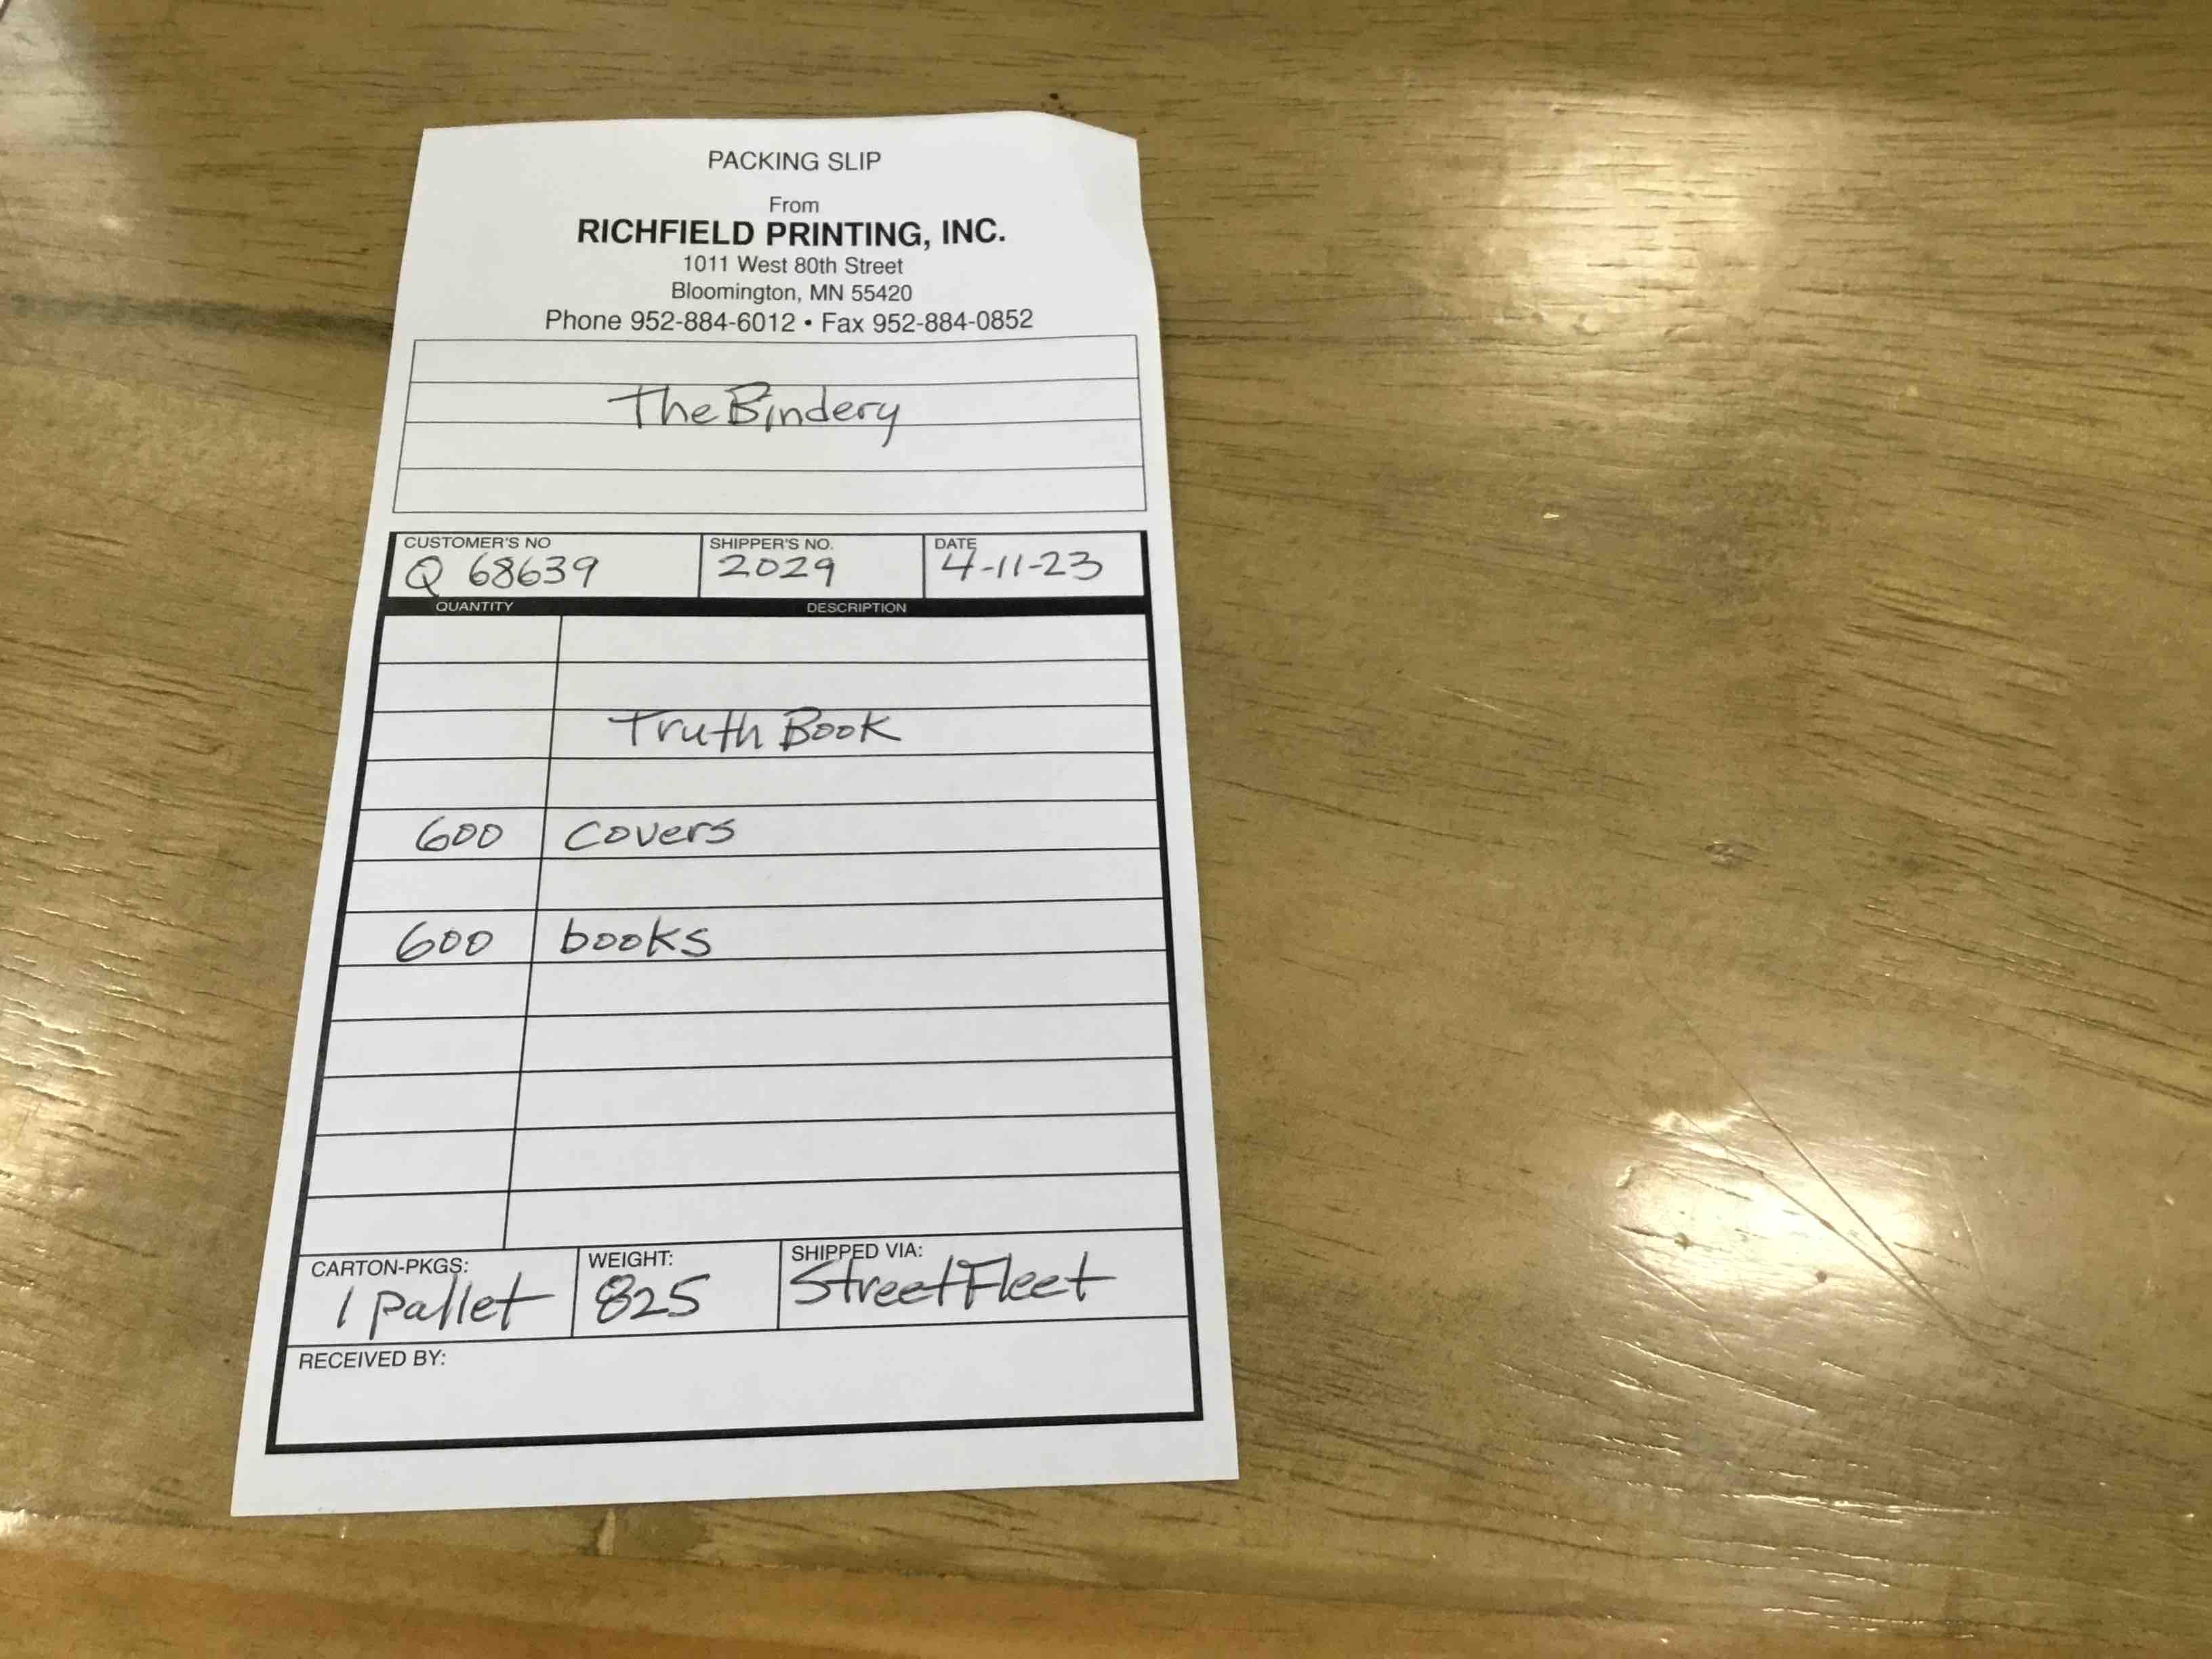 PACKING SLIP
From
RICHFIELD PRINTING, INC.
1011 West 80th Street
Bloomington, MN 55420
Phone 952-884-6012 • Fax 952-884-0852
The Bindery
CUSTOMER'S NO SHIPPER'S NO. DATE
Q 68639 2029 4-11-23
QUANTITY DESCRIPTION
Truth Book
600 covers
600 books
CARTON-PKGS: WEIGHT: SHIPPED VIA:
1 pallet 825 StreetFleet
RECEIVED BY: